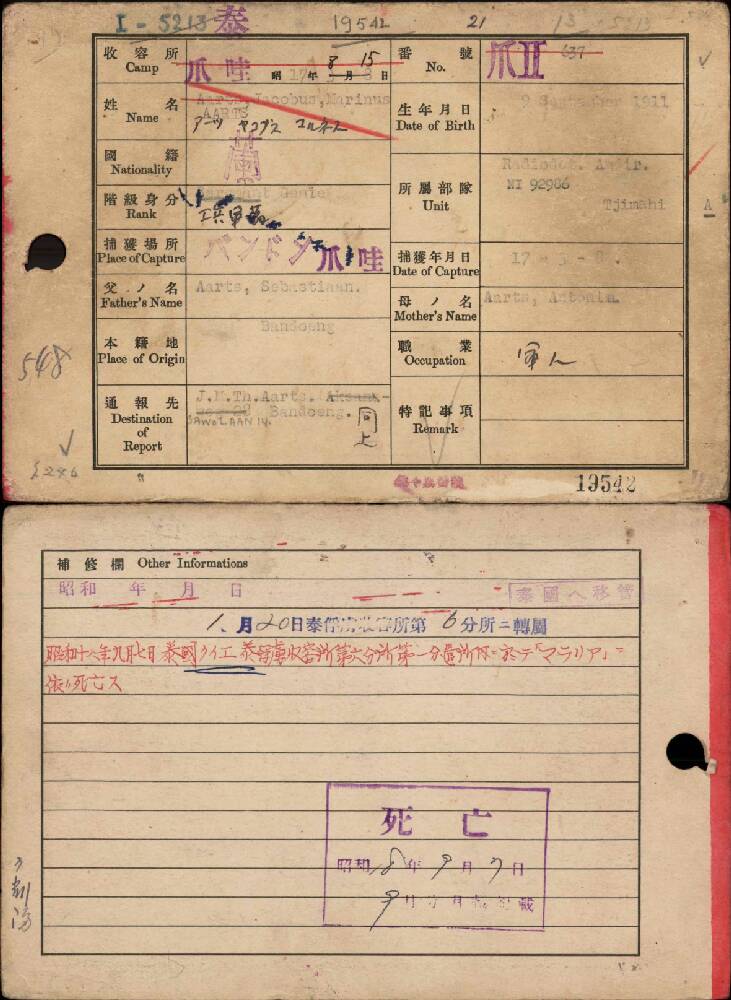 I - 5213 泰 19542 21 13 5213
收容所 Camp 爪哇 昭 17年 8月 15日
番號 No. 爪II 637
姓名 Name Aarts, Jacobus, Marinus
AARTS
アーツ ヤコブス
生年月日 Date of Birth 9 September 1911
國籍 Nationality 蘭
階級身分 Rank Sergeant Genie
所屬部隊 Unit
NI 92906
Tjimahi
A
捕獲場所 Place of Capture バンドン 爪哇
捕獲年月日 Date of Capture 17 - 3 - 8.
父ノ名 Father's Name Aarts, Sebastiaan.
母ノ名 Mother's Name Aarts, Antonia.
本籍地 Place of Origin Bandoeng
職業 Occupation 軍人
通報先 Destination of Report J.M.Th.Aarts.
Bandoeng.
SAWOLAAN 14.
同上
特記事項 Remark
548
19542
補修欄 Other Informations
昭和 年 月 日
泰國へ移管
1、月20日泰俘虜收容所第6分所ニ轉屬
昭和十八年九月七日泰國クイエ泰俘虜收容所第六分所第一分遣所ニ於テ「マラリア」ニ
依リ死亡ス
死亡
昭和18年9月7日
9月